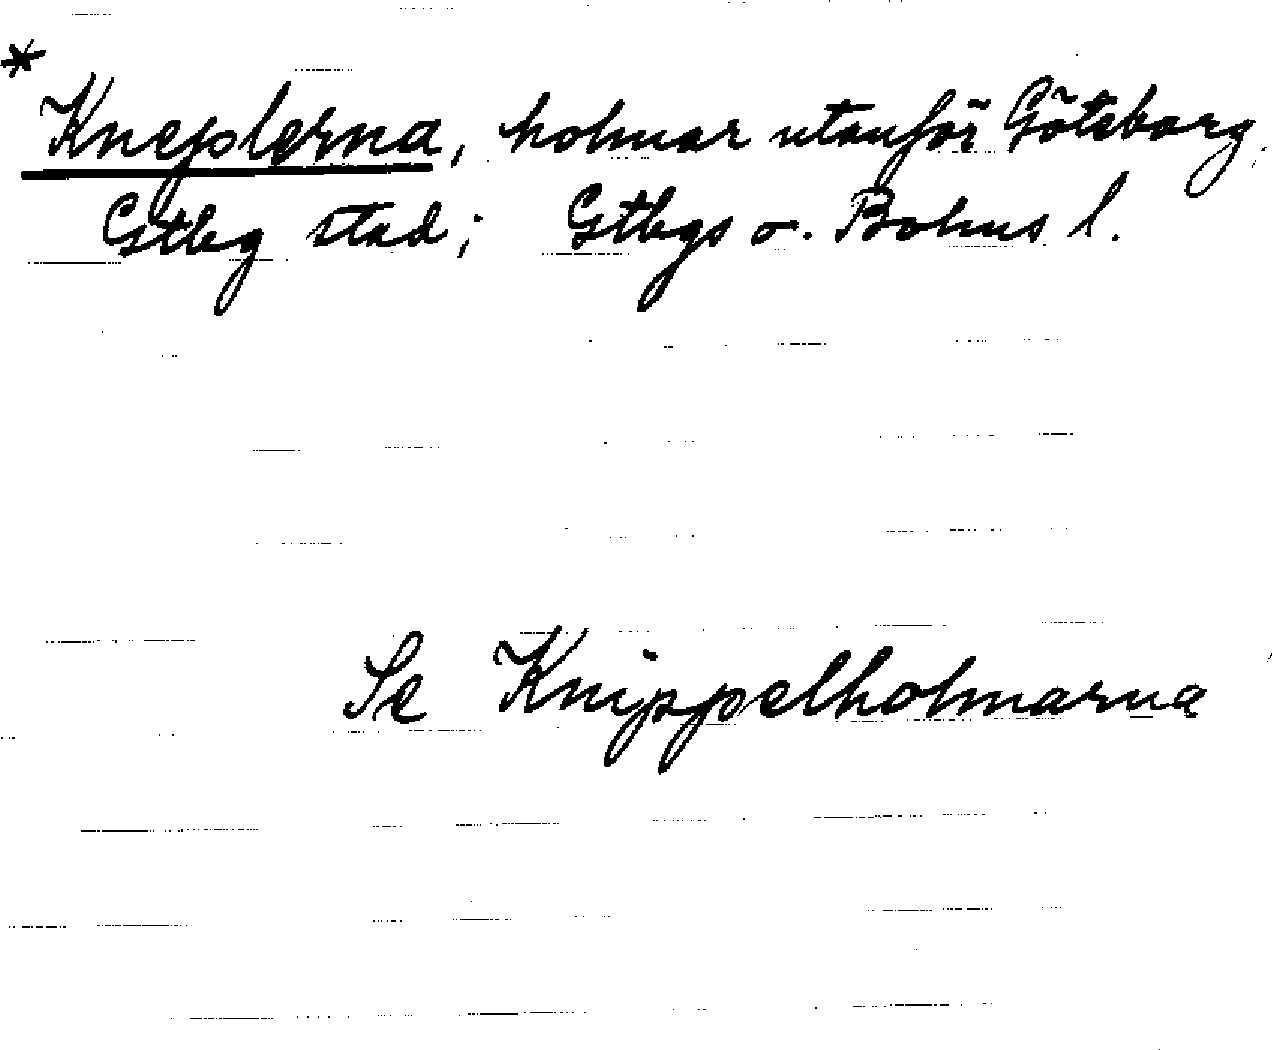 *
Kneplerna, holmar utanför Göteborg,
Gtbg stad; Gtbgs o. Bohus l.
Se Knippelholmarna